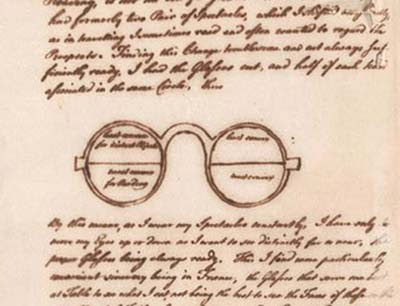 had formerly two Pair of Spectacles, which I shifted
as in travelling I sometimes read and often wanted to regard the
Prospects. Finding this Change troublesome and not always suf-
ficiently ready, I had the Glasses cut, and half of each kind
associated in the same Circle, thus
least convex
for distant Objects
most convex
for Reading
least convex
most convex
By this means, as I wear my Spectacles constantly, I have only to
move my Eyes up or down as I want to see distinctly far or near, the
proper Glasses being always ready. This I find more particularly
convenient since my being in France, the Glasses that serve me best
at Table to see what I eat not being the best to see the Faces of those